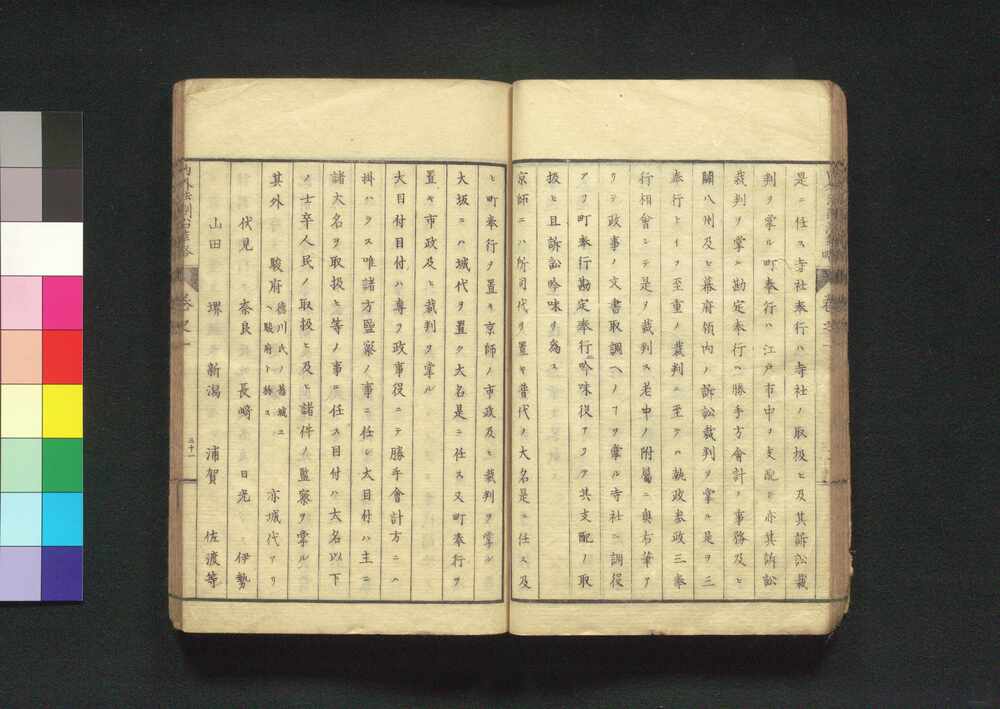 是ニ任ス寺社奉行ハ寺社ノ取扱ヒ及其訴訟裁
判ヲ掌ル町奉行ハ江戸市中ノ支配ヒ亦其訴訟
裁判ヲ掌ル勘定奉行ハ勝手方會計ノ事務及ヒ
關八州及ヒ幕府領内ノ訴訟裁判ヲ掌ル是ヲ三
奉行トイフ至重ノ裁判ニ至テハ執政参政三奉
行相會シテ是ヲ裁判ス老中ノ附屬ニ奥右筆ア
リテ政事ノ文書取調ヘノヿヲ掌ル寺社ニ調役
アリ町奉行勘定奉行ニ吟味役アツテ其支配ノ取
扱ヒ且訴訟吟味ヲ為ス
京師ニハ所司代ヲ置キ普代ノ大名是ニ任ス及
ヒ町奉行ヲ置キ京師ノ市政及ヒ裁判ヲ掌ル
大坂ニハ城代ヲ置ク大名是ニ任ス又町奉行ヲ
置キ市政及ヒ裁判ヲ掌ル
大目付目付ハ専ラ政事役ニテ勝手會計方ニハ
掛ハラス唯諸方監察ノ事ニ任シ大目付ハ主ニ
諸大名ヲ取扱ヒ等ノ事ニ任ス目付ハ大名以下
ノ士卒人民ノ取扱ヒ及ヒ諸件ノ監察ヲ掌ル
其外 駿府 徳川氏ノ舊城ニヘ駿府ト称ス 亦城代アリ
伏見 奈良 長崎 日光 伊勢
山田 堺 新潟 浦賀 佐渡等
卷之一
三十一